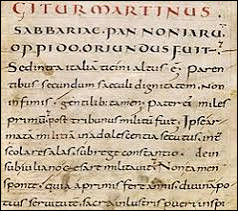 GITUR MARTINUS
SABBARIAE·PANNONIARU
OPPIDO·ORIUNDUS FUIT·
Sedintra italiā ticini altus ē; Paren
tibus secundum saeculi dignitatem·Non
infimis·gentilib; tamen; pater ei miles
primū post tribunus militū fuit; Ipse ar
matā militiā inadulescentia secutus, int
scolares alas subrege constantio· dein
subiuliano cesare militavit; Non tamen
sponte, quia aprimis fere annis, divinā po
tius servitute, sacra inlustris pueri sp